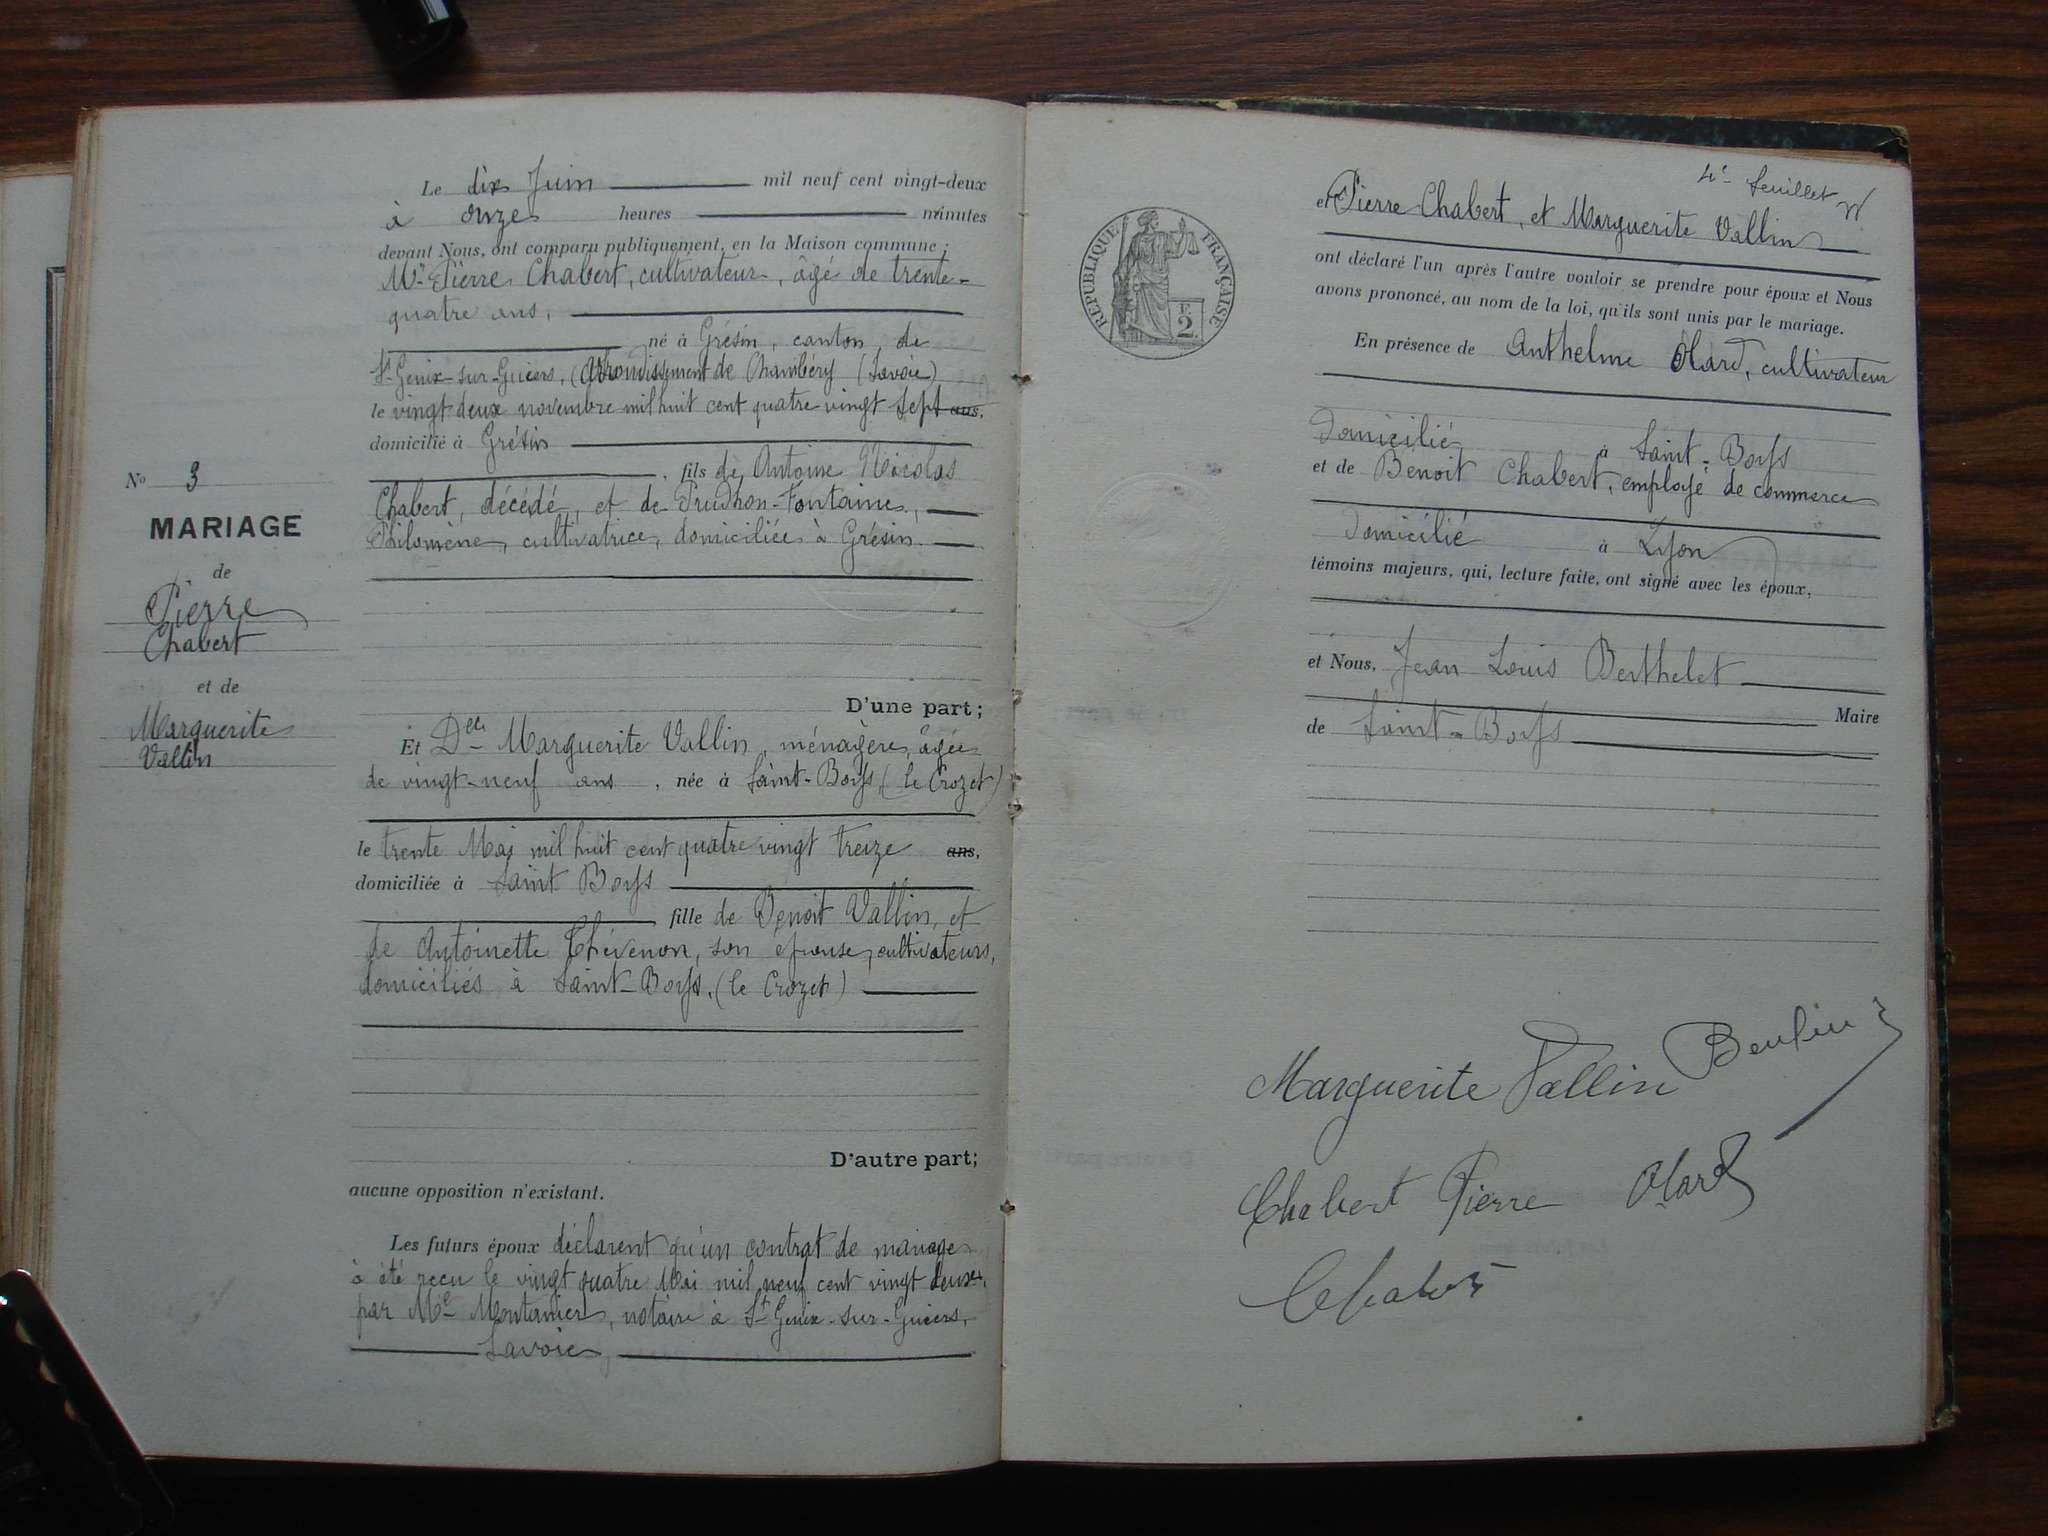 Le dix Juin mil neuf cent vingt-deux
à onze heures minutes
devant Nous, ont comparu publiquement, en la Maison commune :
Mr Pierre Chabert, cultivateur, âgé de trente-
quatre ans,
né à Grésin, canton de
St Genix-sur-Guiers, (Arrondissement de Chambéry (Savoie)
le vingt deux novembre mil huit cent quatre vingt sept ans,
domicilié à Grésin
, fils de Antoine Nicolas
Chabert, décédé, et de Prudhon-Fontaine,
Philomène, cultivatrice, domiciliée à Grésin.
No 3
MARIAGE
de
Pierre
Chabert
et de
Marguerite
Vallin
D'une part;
Et Delle Marguerite Vallin, ménagère, âgée
de vingt-neuf ans, née à Saint-Boys (le Crozet)
le trente Mai mil huit cent quatre vingt treize ans,
domiciliée à Saint Boys
fille de Benoit Vallin, et
de Antoinette Thévenon, son épouse, cultivateurs,
domiciliés à Saint-Boys, (le Crozet)
D'autre part;
aucune opposition n'existant.
Les futurs époux déclarent qu'un contrat de mariage
a été reçu le vingt quatre Mai mil neuf cent vingt deux,
par Me Montanier, notaire à St Genix-sur-Guiers,
Savoie,
4e feuillet
RÉPUBLIQUE FRANÇAISE
2 F.
et Pierre Chabert, et Marguerite Vallin
ont déclaré l'un après l'autre vouloir se prendre pour époux et Nous
avons prononcé, au nom de la loi, qu'ils sont unis par le mariage.
En présence de Anthelme Olard, cultivateur
domicilié à Saint-Boys
et de Benoit Chabert, employé de commerce
domicilié à Lyon
témoins majeurs, qui, lecture faite, ont signé avec les époux,
et Nous, Jean Louis Berthelet
Maire
de Saint-Boys
Marguerite Vallin
Chabert Pierre Olard
Chabert